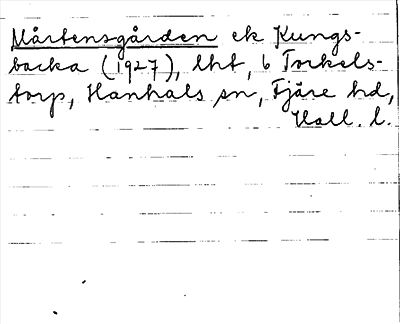 Mårtensgården ek Kungs-
backa (1927), lht, 6 Torkels-
torp, Hanhals sn, Fjäre hd,
Hall. l.